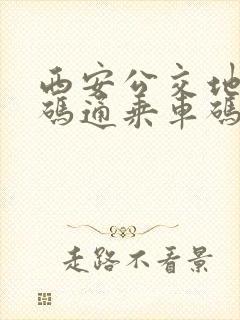 西安公交地
碼通乘車碼
走路不看景